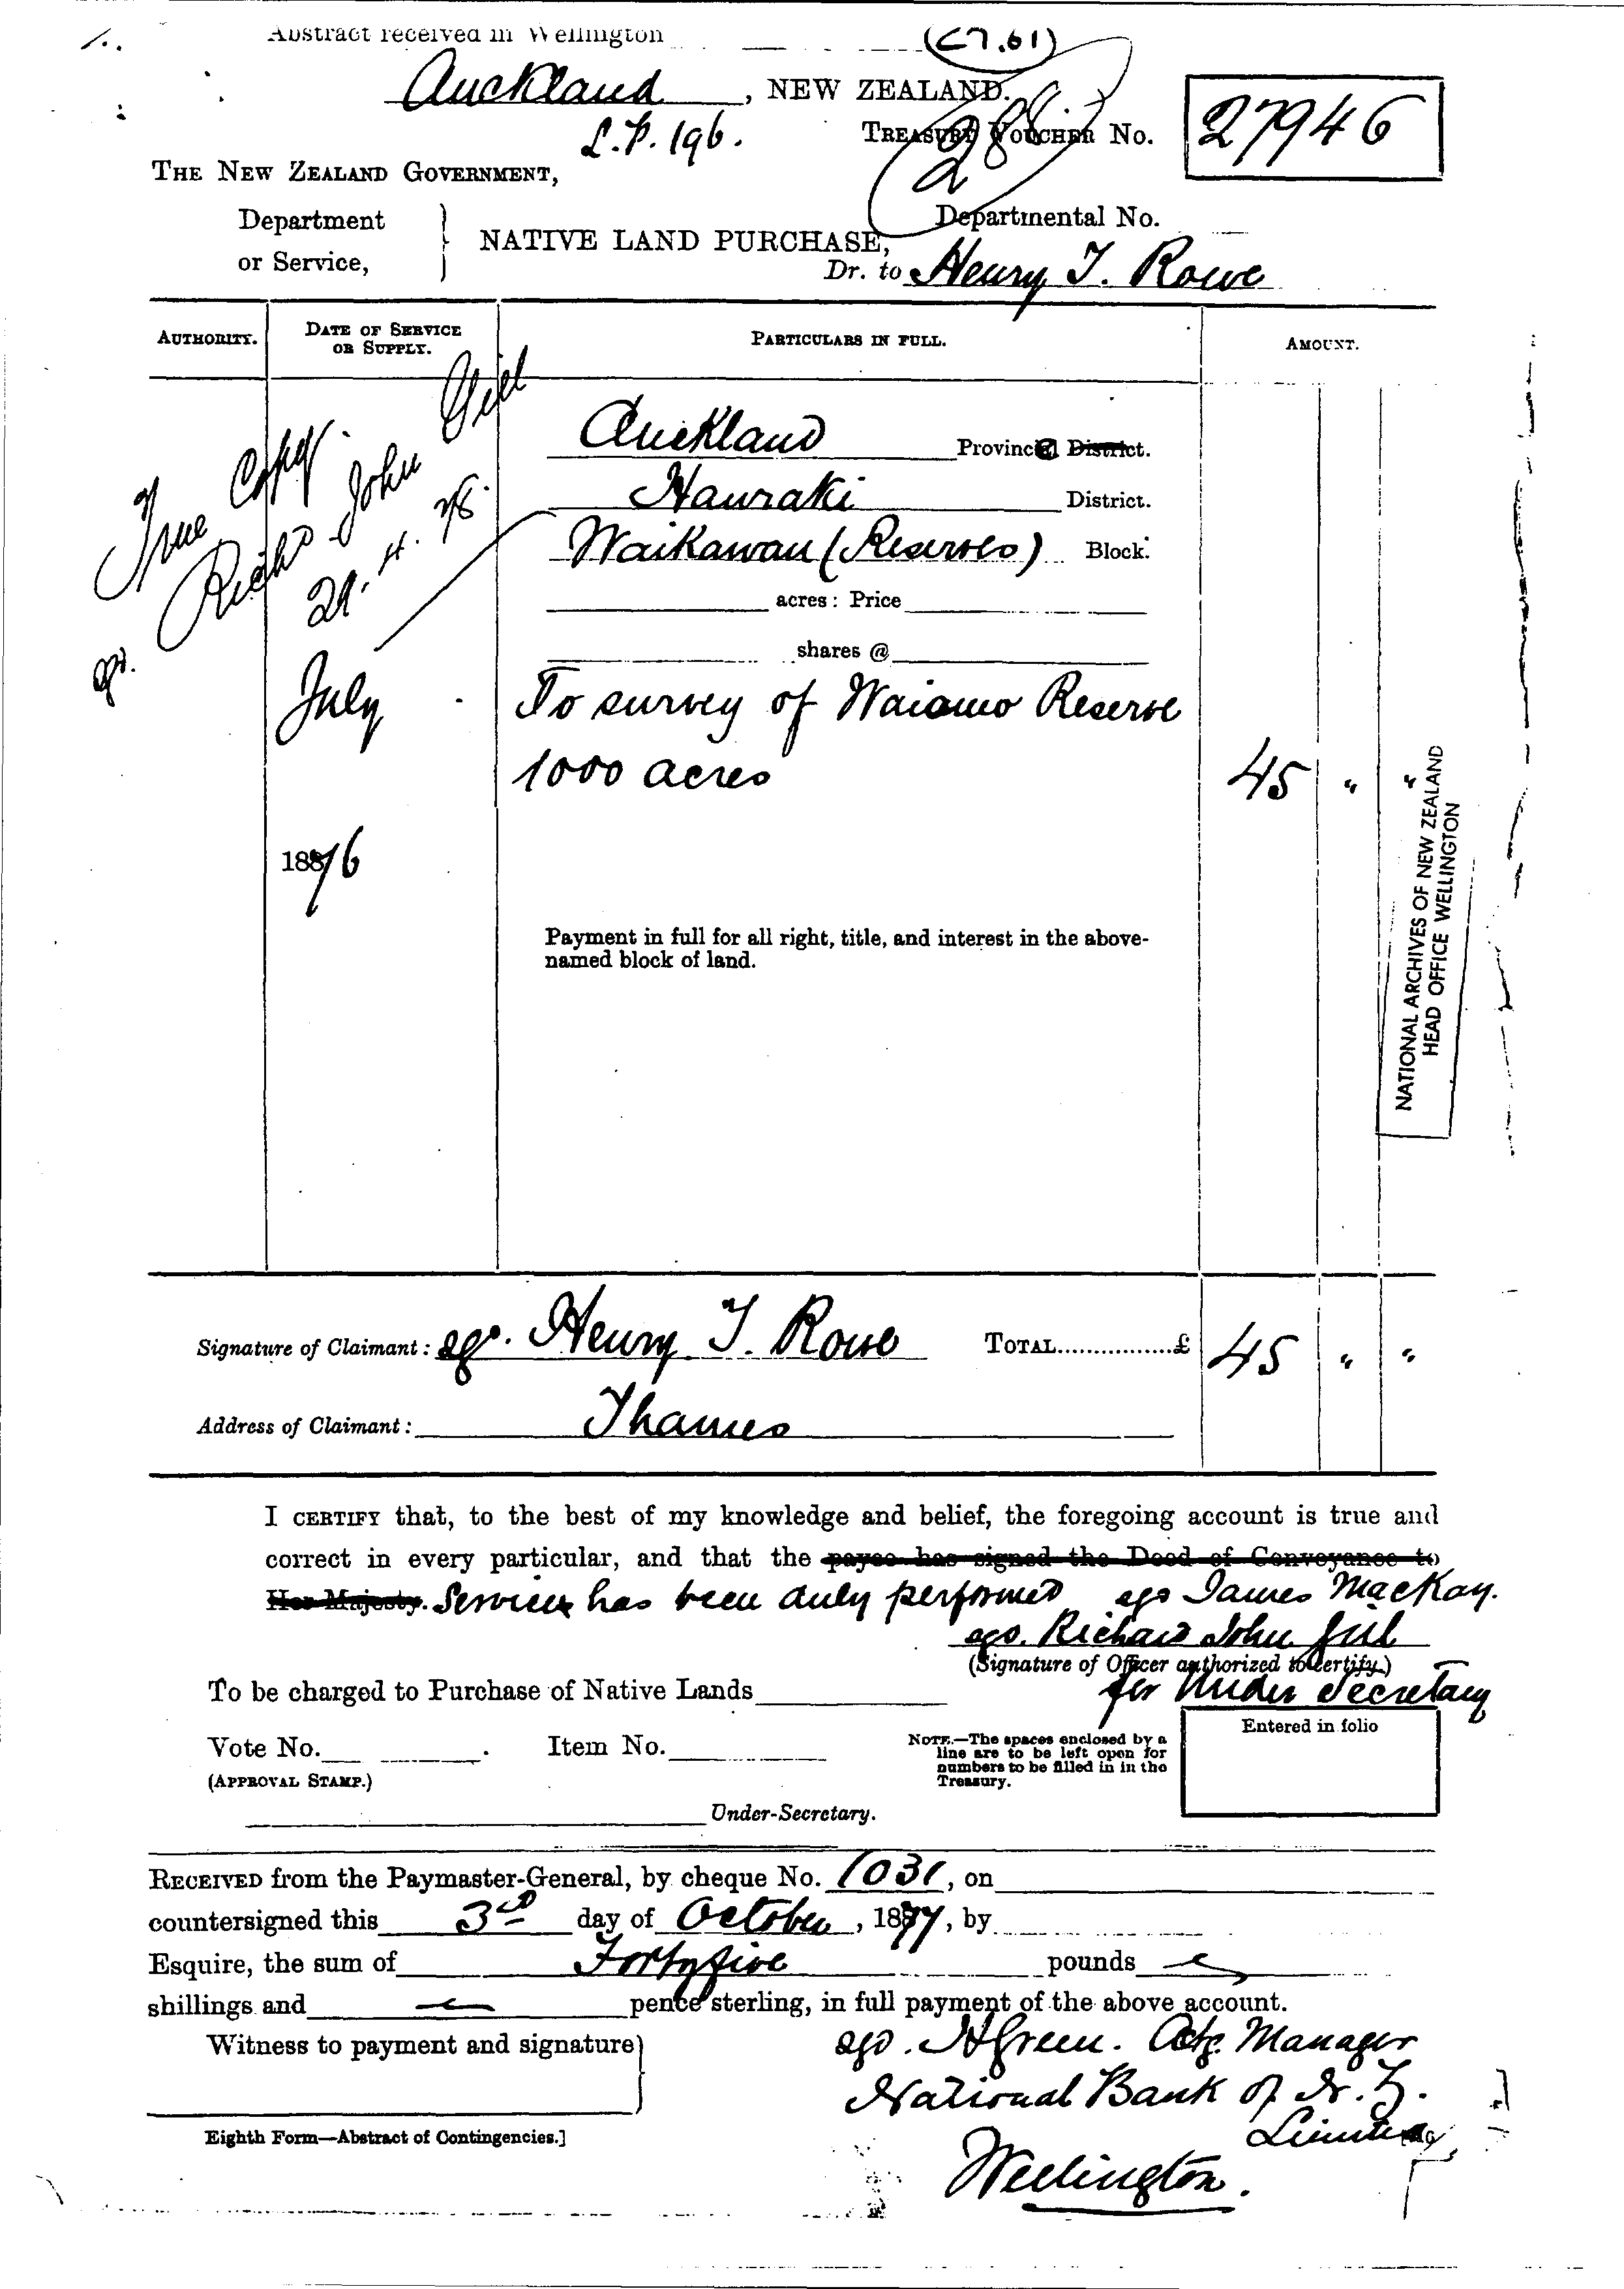 Abstract received in Wellington
(C7.61)
Auckland, NEW ZEALAND.
L.P. 196.
TREASURY VOUCHER No. 27946
THE NEW ZEALAND GOVERNMENT,
Department
or Service,
NATIVE LAND PURCHASE,
Departmental No.
Dr. to Henry T. Rowe
AUTHORITY.
DATE OF SERVICE
OR SUPPLY.
PARTICULARS IN FULL.
AMOUNT.
True Copy
Richd John Gill
Auckland Provincial District.
Hauraki District.
Waikawau (Reserves) Block.
acres: Price
shares @
July To survey of Waiomo Reserve
1000 acres 45 " "
1876
Payment in full for all right, title, and interest in the above-
named block of land.
NATIONAL ARCHIVES OF NEW ZEALAND
HEAD OFFICE WELLINGTON
Signature of Claimant: sgd. Henry T. Rowe TOTAL................£ 45 " "
Address of Claimant: Thames
I CERTIFY that, to the best of my knowledge and belief, the foregoing account is true and
correct in every particular, and that the payee has signed the Deed of Conveyance to
Her Majesty. Service has been duly performed sgd James Mackay.
sgd. Richard John Gill
(Signature of Officer authorized to certify.)
for Under Secretary
To be charged to Purchase of Native Lands
Vote No. Item No.
(APPROVAL STAMP.)
NOTE.—The spaces enclosed by a
line are to be left open for
numbers to be filled in in the
Treasury.
Entered in folio
Under-Secretary.
RECEIVED from the Paymaster-General, by cheque No. 1031, on
countersigned this 3rd day of October, 1877, by
Esquire, the sum of Forty five pounds
shillings and pence sterling, in full payment of the above account.
Witness to payment and signature
sgd. H Green. Actg. Manager
National Bank of N.Z.
Limited
Wellington.
Eighth Form—Abstract of Contingencies.]